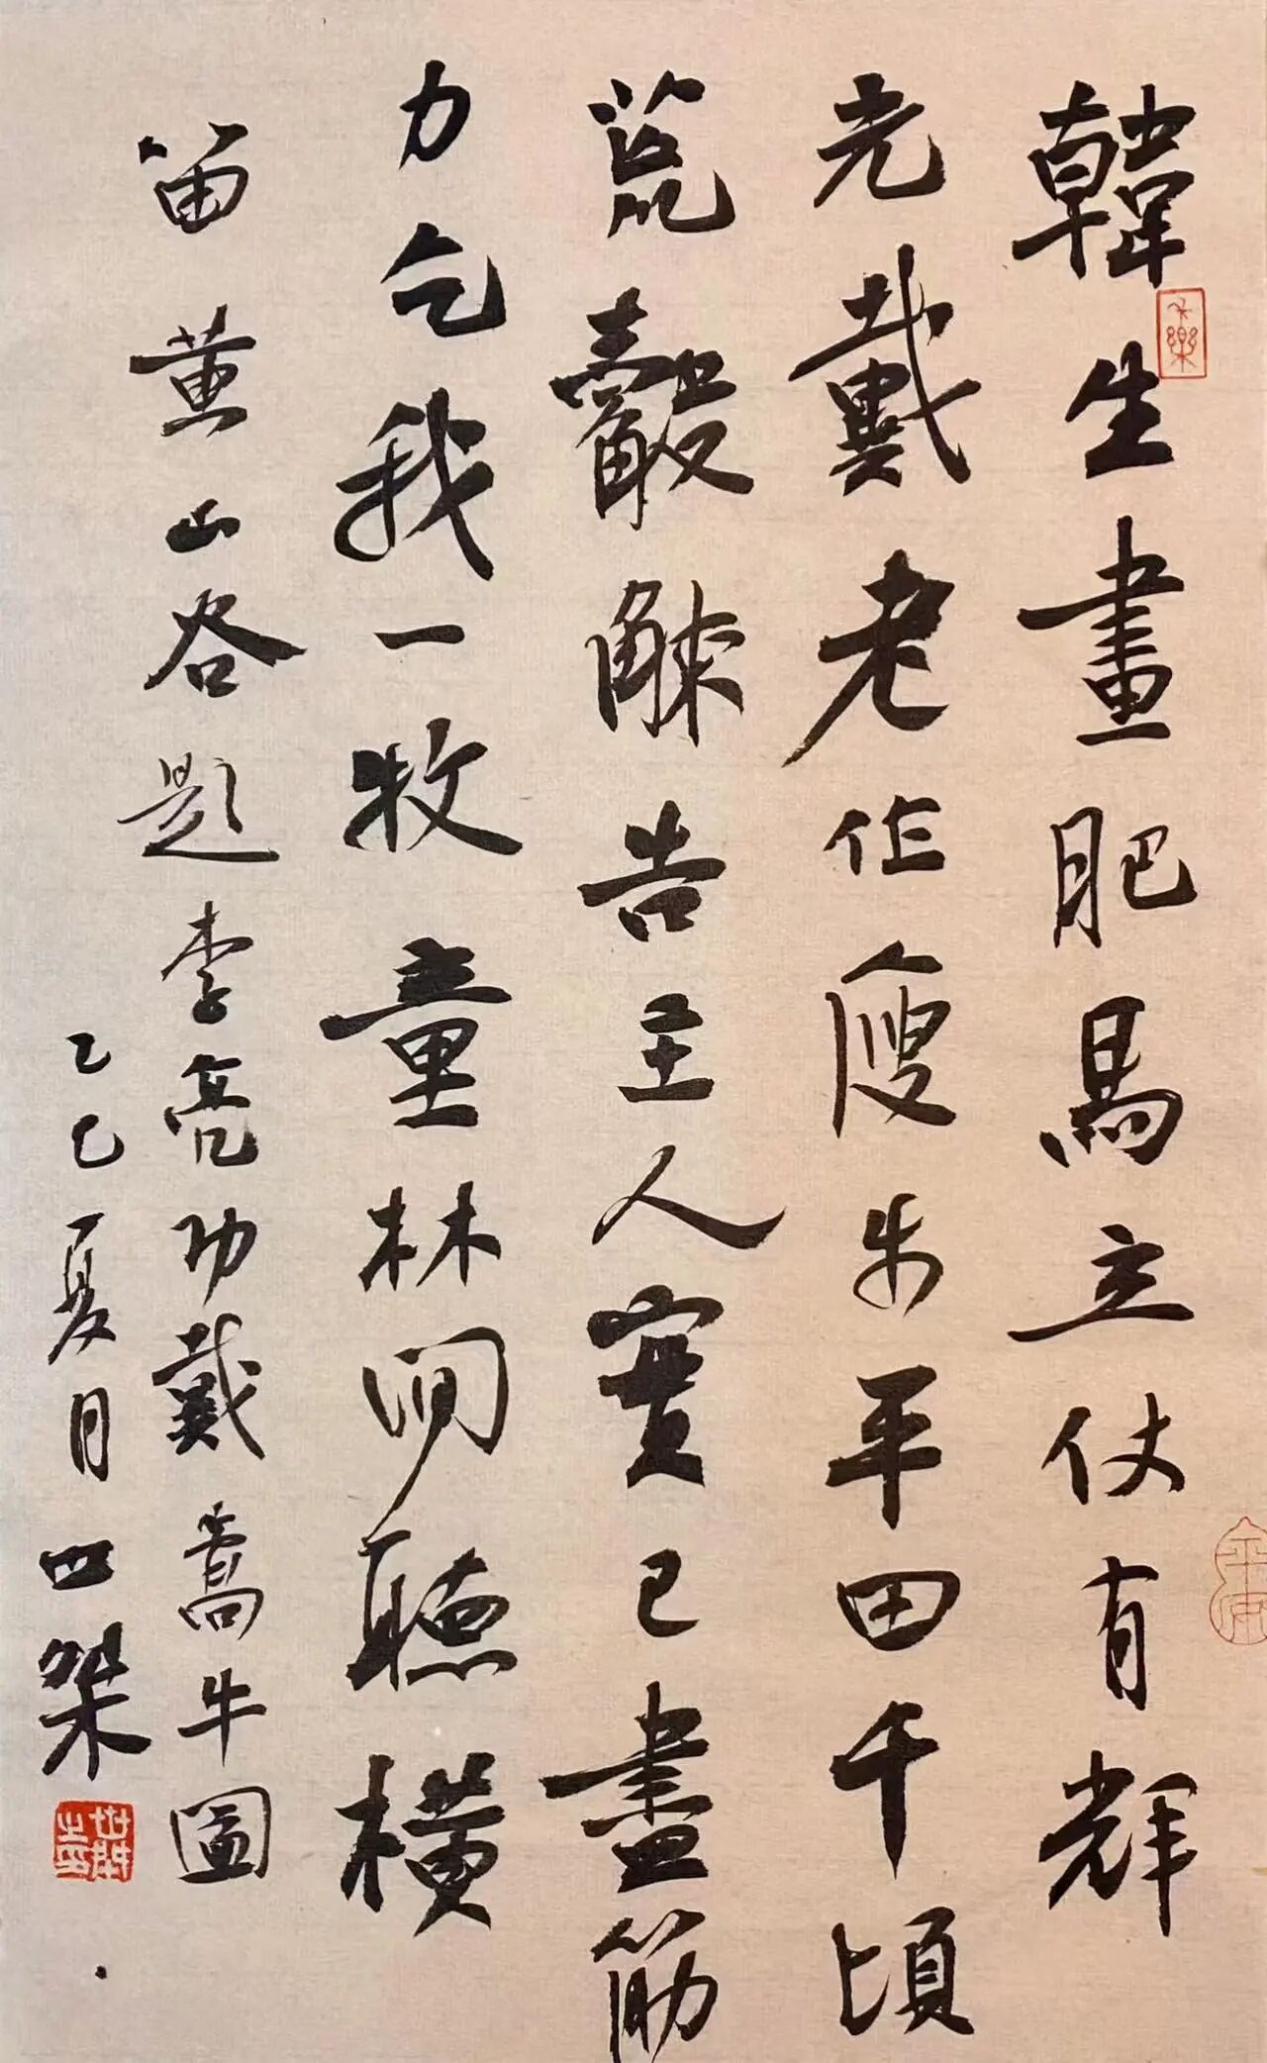 韓生畫肥馬立仗有輝
光戴老作瘦牛平田千頃
荒觳觫告主人實已盡筋
力乞我一牧童林間聽橫
笛 黄山谷題李亮功戴嵩牛圖
乙巳夏月四桀